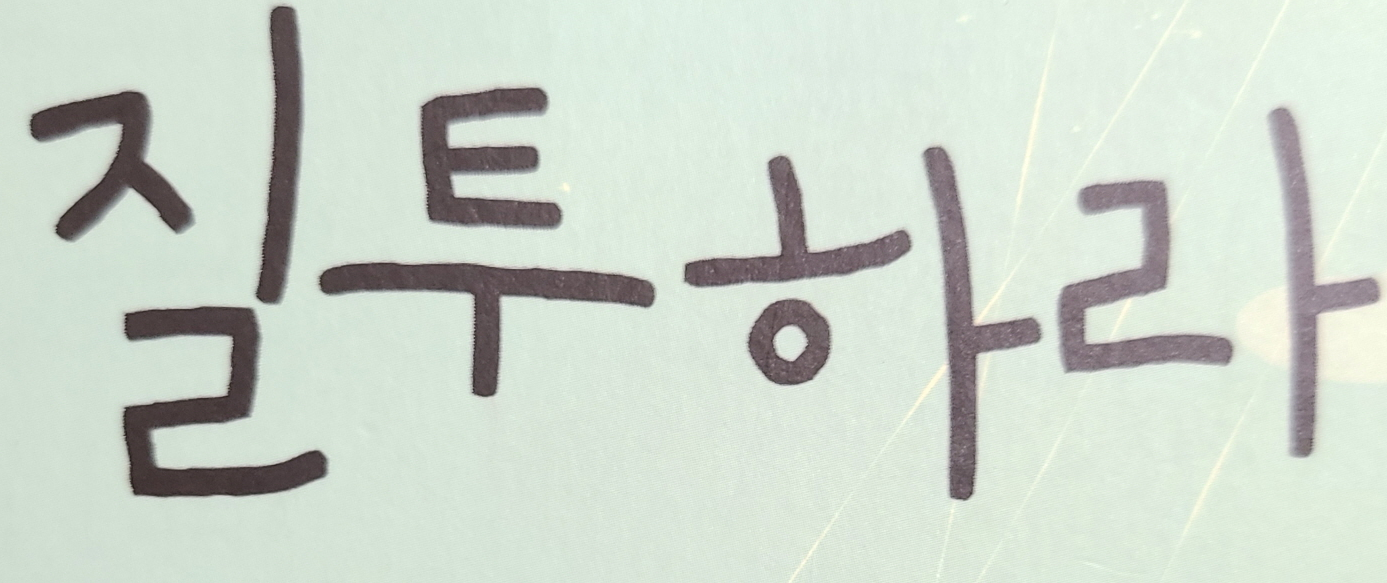 질투하라